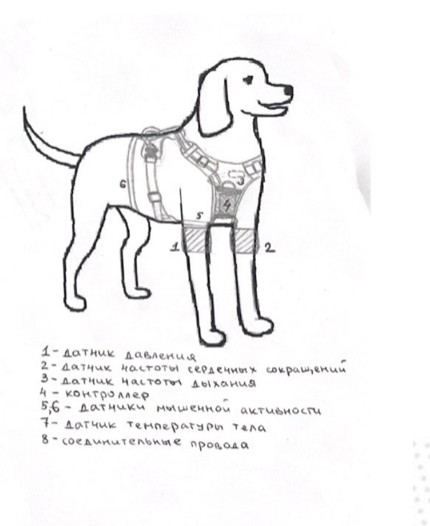 6
3
4
5
1
2
1 - датчик давления
2 - датчик частоты сердечных сокращений
3 - датчик частоты дыхания
4 - контроллер
5,6 - датчики мышенной активности
7 - датчик температуры тела
8 - соединительные провода